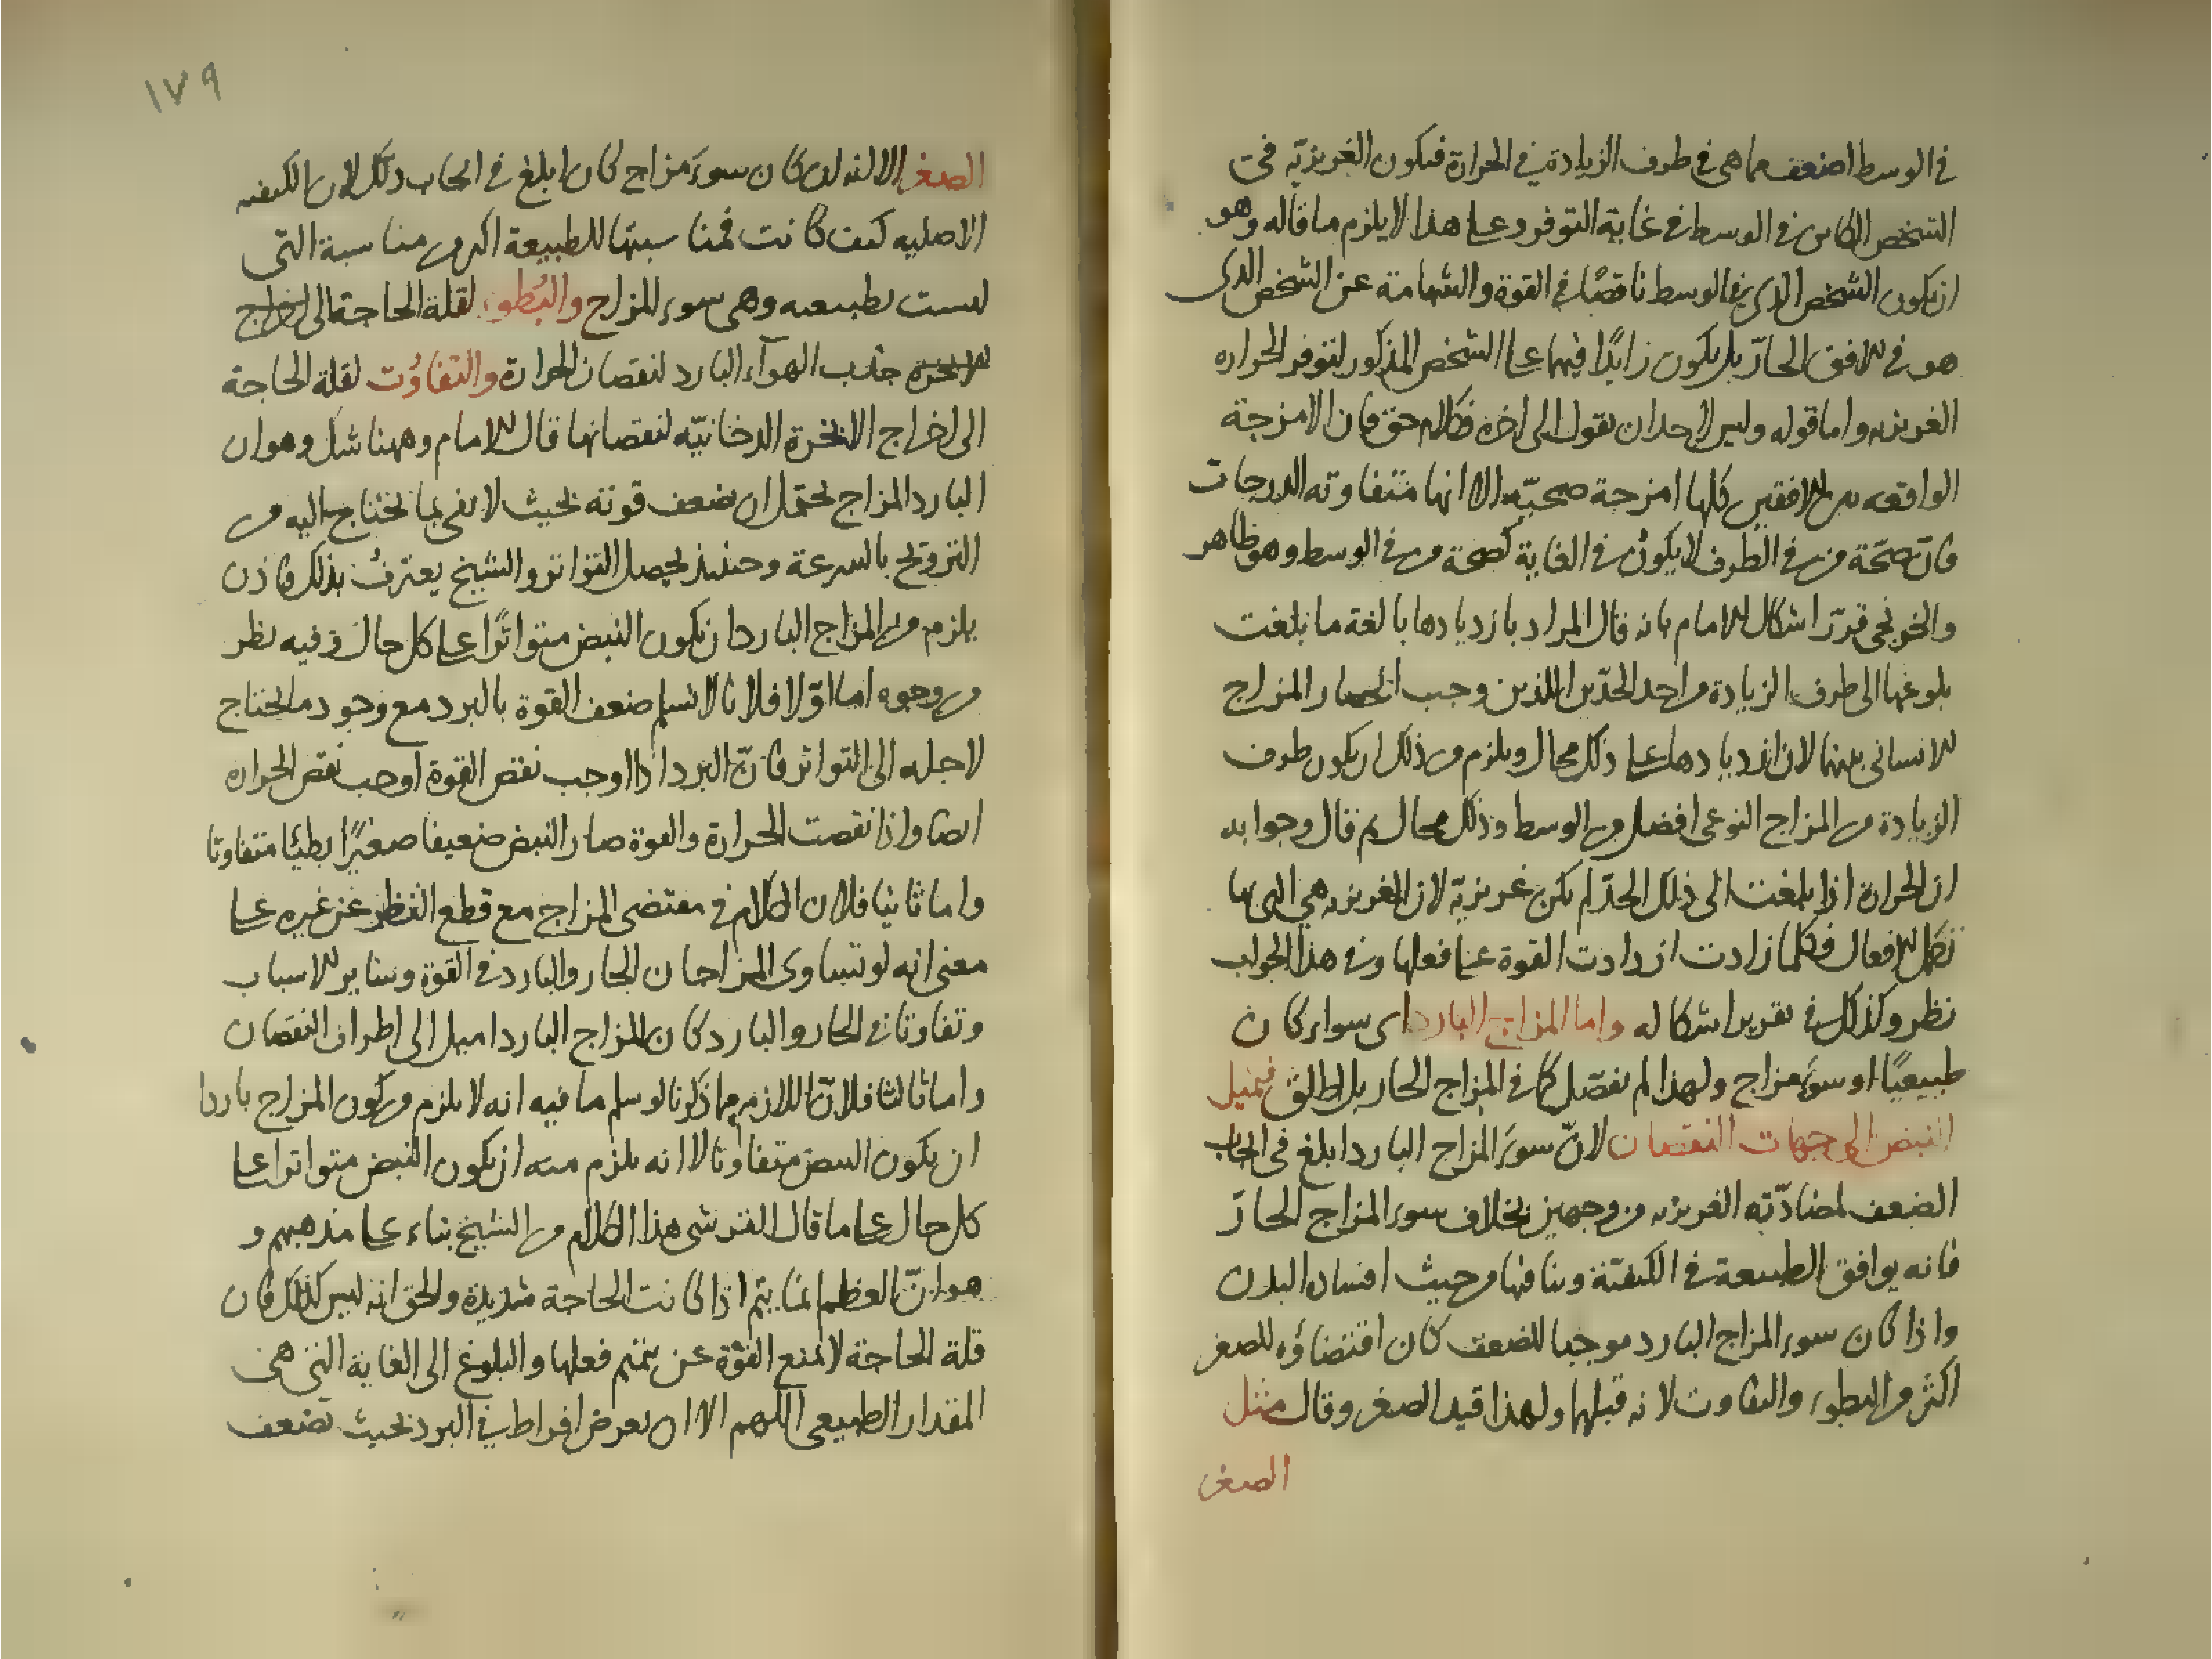 في الوسط اضعف مما هي في طرف الزيادة في الحرارة فيكون الغريزيّه في
الشخص الكاين في الوسط في غاية التوفر وعلى هذا لا يلزم ما قاله وهو
ان يكون الشخص الذي في الوسط ناقصًا في القوة والشهامة عن الشخص الذي
هو في الافق الحارّ بل يكون زايدًا فيهما على الشخص المذكور لتوفر الحراره
الغريزيه واما قوله وليس لاحد ان يقول الى اخره فكلام حق فان الامزجة
الواقعه بين الافقين كلها امزجة صحيّه الا انها متفاوته الدرجات
فانّ صحّة من في الطرف لا يكونُ في الغاية كصحة من في الوسط وهو ظاهر
والخونجى قرّر اشكال الامام بانه قال المراد بازديادها بالغة ما بلغت
بلوغها الى طرف الزيادة من احد الحدّين اللذين وجب انحصار المزاج
الانسانى بينهما لان ازديادها على ذلك محال ويلزم من ذلك ان يكون طرف
الزيادة من المزاج النوعى افضل من الوسط وذلك محال ثم قال وجوابه
ان الحرارة اذا بلغت الى ذلك الحدّ لم يكن غريزيّة لان الغريزيه هي التي بها
تكمل الافعال فكلما زادت ازدادت القوة على فعلها وفي هذا الجواب
نظر وكذلك في تقرير اشكاله واما المزاج البارد اى سواء كان
طبيعيًا او سوءَ مزاج ولهذا لم يفصّل كما في المزاج الحار بل اطلق فيميل
النبض الى جهات النقصان لانّ سوءَ المزاج البارد ابلغ في ايجاب
الضعف لمضادّته الغريزيه من وجهين بخلاف سوء المزاج الحارّ
فانه يوافق الطبيعة في الكيفيّة وينافيها من حيث افساد البدن
واذا كان سوء المزاج البارد موجبا للضعف كان اقتضاؤه للصغر
اكثر من البطوء والتفاوت لانه قبلهما ولهذا قيد الصغر وقال مثل
الصغر
١٧٩
الصغر الا انه ان كان سوءَ مزاج كان ابلغ في ايجاب ذلك لان الكيفيه
الاصليه كيف كانت فمناسبتها للطبيعة اكثر من مناسبة التى
ليست بطبيعيه وهى سوء المزاج والبُطوء لقلة الحاجة الى اخراج
الابخرة جذب الهوآء البارد لنقصان الحرارة والتفاوُت لقلة الحاجة
الى اخراج الابخرة الدخانيّه لنقصانها قال الامام وههنا شك وهو ان
البارد المزاج يحتمل ان يضعف قوته بحيث لا يفي بما يحتاج اليه من
الترويح بالسرعة وحينئذ يحصل التواتر والشيخ يعترفُ بذلك فاذن
يلزم من المزاج البارد ان يكون النبض متواترًا على كل حال وفيه نظر
من وجوه اما اوّلا فلانا لا نسلم ضعف القوة بالبرد مع وجود ما يحتاج
لاجله الى التواتر فانّ البرد اذا اوجب نقص القوة اوجب نقص الحراره
ايضا واذا نقصت الحرارة والقوة صار النبض ضعيفا صغيرًا بطيئا متفاوتا
واما ثانيا فلان الكلام في مقتضى المزاج مع قطع النظر عن غيره على
معنى انه لو تساوى المزاجان الحار والبارد في القوة وساير الاسباب
وتفاوتا في الحار والبارد كان المزاج البارد اميل الى اطراف النقصان
واما ثالثا فلانّ اللازم مما ذكرنا لو سلم ما فيه انه لا يلزم من كون المزاج باردا
ان يكون النبض متفاوتا لا انه يلزم منه ان يكون النبض متواترا على
كل حال على ما قال القرشى هذا الكلام من الشيخ بناء على مذهبهم و
هو انّ العظم انما يتم اذا كانت الحاجة شديدة والحق انه ليس كذلك فان
قلة الحاجة لا تمنع القوّة عن تتميم فعلها والبلوغ الى الغاية التى هى
المقدار الطبيعى اللهم الا ان يعرض افراط في البرد بحيث تضعف